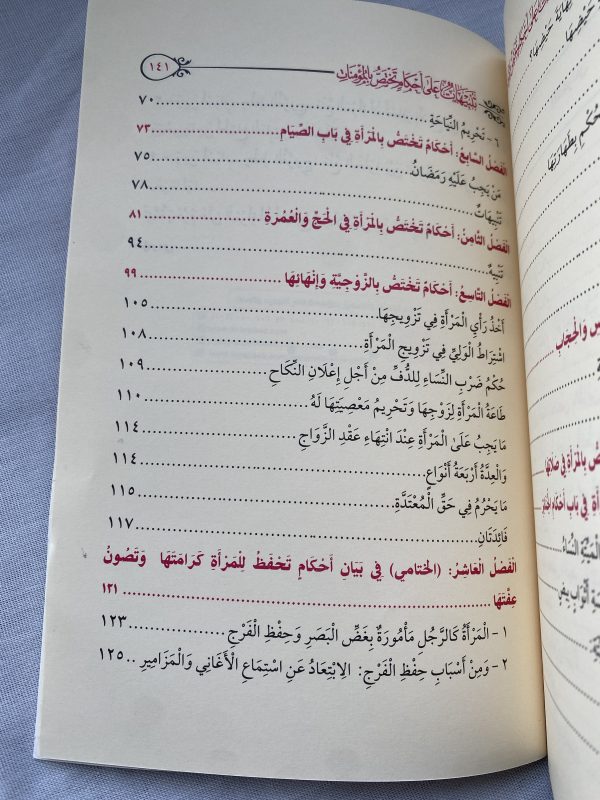 تنبيهات على أحكام تختص بالمؤمنات
١٤١
٦ - تَحْرِيمُ النِّيَاحَةِ ........ ٧٠
الفَصْلُ السَّابِعُ: أَحْكَامٌ تَخْتَصُّ بِالمَرْأَةِ فِي بَابِ الصِّيَامِ ........ ٧٣
مَنْ يَجِبُ عَلَيْهِ رَمَضَانُ ........ ٧٥
تَنْبِيهَاتٌ ........ ٧٨
الفَصْلُ الثَّامِنُ: أَحْكَامٌ تَخْتَصُّ بِالْمَرْأَةِ فِي الحَجِّ وَالْعُمْرَةِ ........ ٨١
تَنْبِيهٌ ........ ٩٤
الفَصْلُ التَّاسِعُ: أَحْكَامٌ تَخْتَصُّ بِالزَّوْجِيَّةِ وَإِنْهَائِهَا ........ ٩٩
أَخْذُ رَأْيِ الْمَرْأَةِ فِي تَزْوِيجِهَا ........ ١٠٥
اشْتِرَاطُ الْوَلِيِّ فِي تَزْوِيجِ الْمَرْأَةِ ........ ١٠٨
حُكْمُ ضَرْبِ النِّسَاءِ لِلدُّفِّ مِنْ أَجْلِ إِعْلَانِ النِّكَاحِ ........ ١٠٩
طَاعَةُ الْمَرْأَةِ لِزَوْجِهَا وَتَحْرِيمُ مَعْصِيَتِهَا لَهُ ........ ١١٠
مَا يَجِبُ عَلَىٰ الْمَرْأَةِ عِنْدَ انْتِهَاءِ عَقْدِ الزَّوَاجِ ........ ١١٤
وَالْعِدَّةُ أَرْبَعَةُ أَنْوَاعٍ ........ ١١٤
مَا يَحْرُمُ فِي حَقِّ الْمُعْتَدَّةِ ........ ١١٥
فَائِدَتَانِ ........ ١١٧
الفَصْلُ العَاشِرُ: (الختامي) فِي بَيَانِ أَحْكَامٍ تَحْفَظُ لِلْمَرْأَةِ كَرَامَتَهَا وَتَصُونُ
عِفَّتَهَا ........ ١٢١
١ - الْمَرْأَةُ كَالرَّجُلِ مَأْمُورَةٌ بِغَضِّ الْبَصَرِ وَحِفْظِ الْفَرْجِ ........ ١٢٣
٢ - وَمِنْ أَسْبَابِ حِفْظِ الْفَرْجِ: الِابْتِعَادُ عَنِ اسْتِمَاعِ الْأَغَانِي وَالْمَزَامِيرِ .. ١٢٥